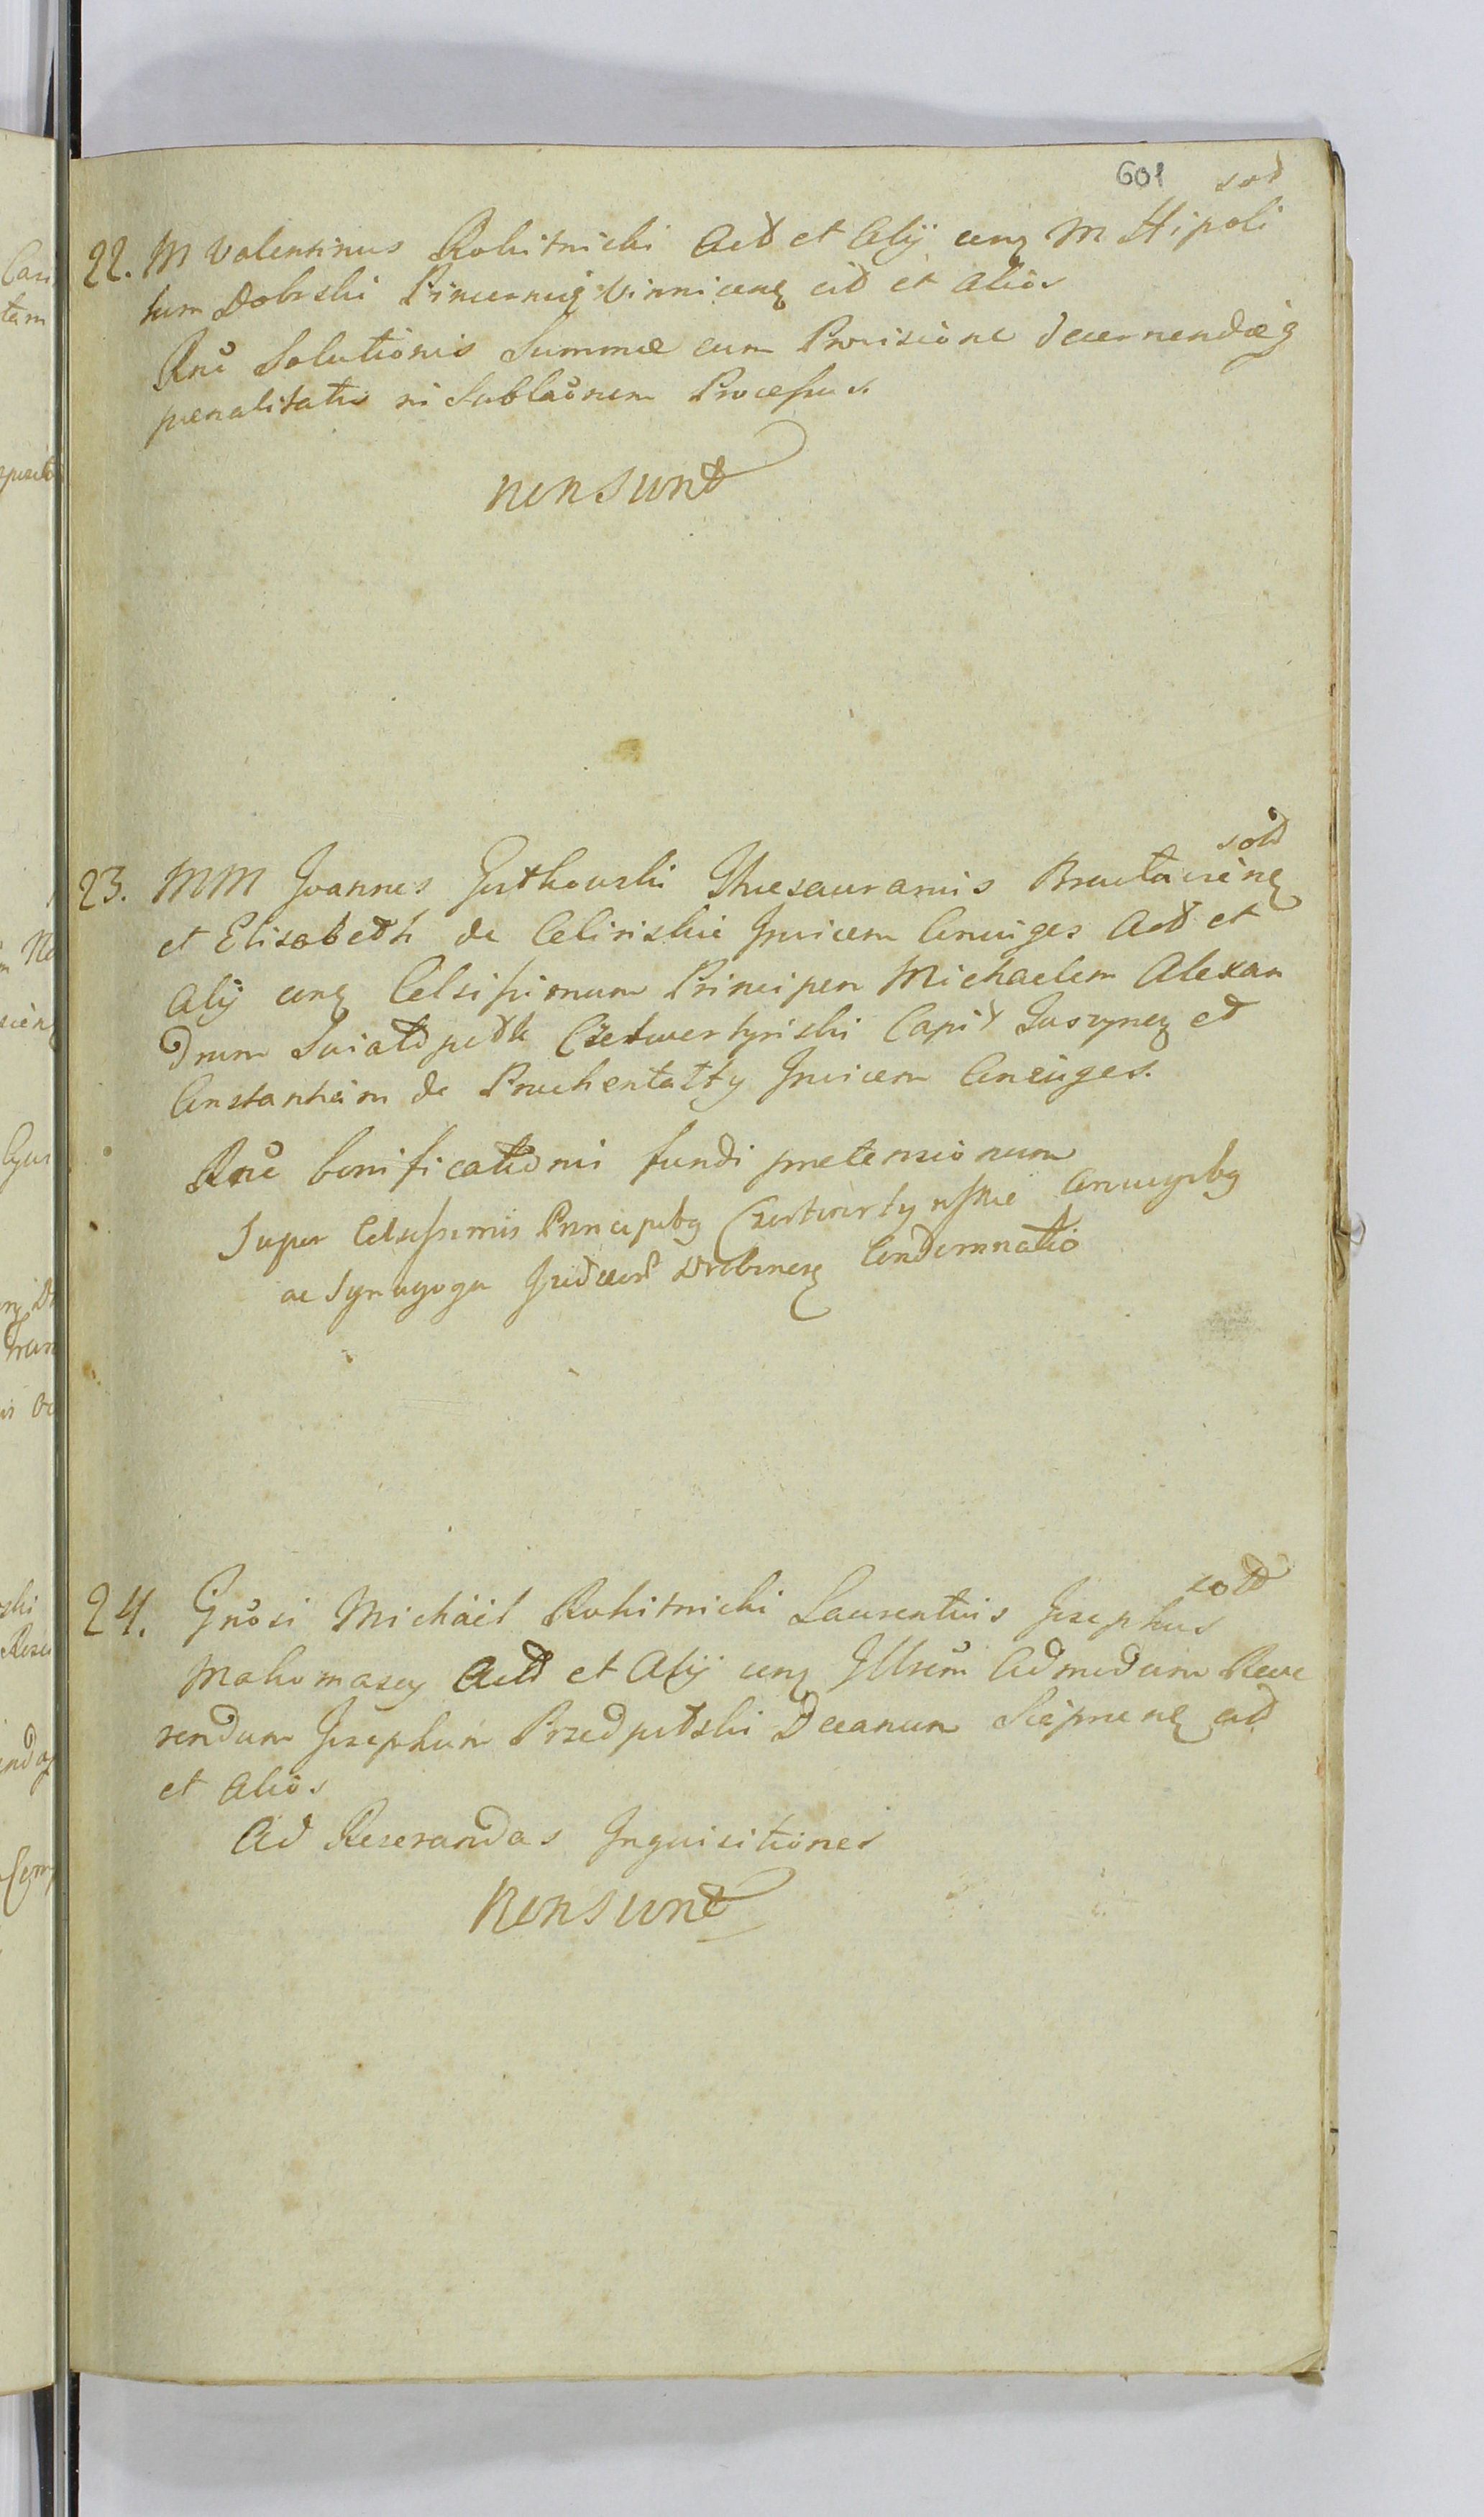 601 sod
22. M Valentinus Rokitnicki Act et Alij conq M Hipoli
tum Dobrski Pincerniq Vinnicenq cit et alios
Rne Solutionis Summæ cum Provisione decernendæq
pænalitatis ni Sublaonem Processus.
non sunt
sod
23. MM Joannes Gutkowski Thesauramis Braclaviènq
et Elisabeth de Celinskie Invicem Conuiges Act et
Alij conq Celsissimum Principem Michaelem Alexan
drum Swiatopeth Czetwertynski Capit Suszynenq et
Constantiam de Invicem Coniuges.
Rne bonificationis fundi pretensionum
Super Celsissimis Principibq Czetwertynskie Coniugibq
ac Synagoga Judæor Condemnatio
sod
24. Gnosi Michaël Rokitnicki Laurentius Josephus
Mahomasey Act et Alij conq Illrem Admodum Reve
rendum Josephum Przedpetski Decanum cit
et Alios
Ad Reserandas Inquisitiones
Non sunt